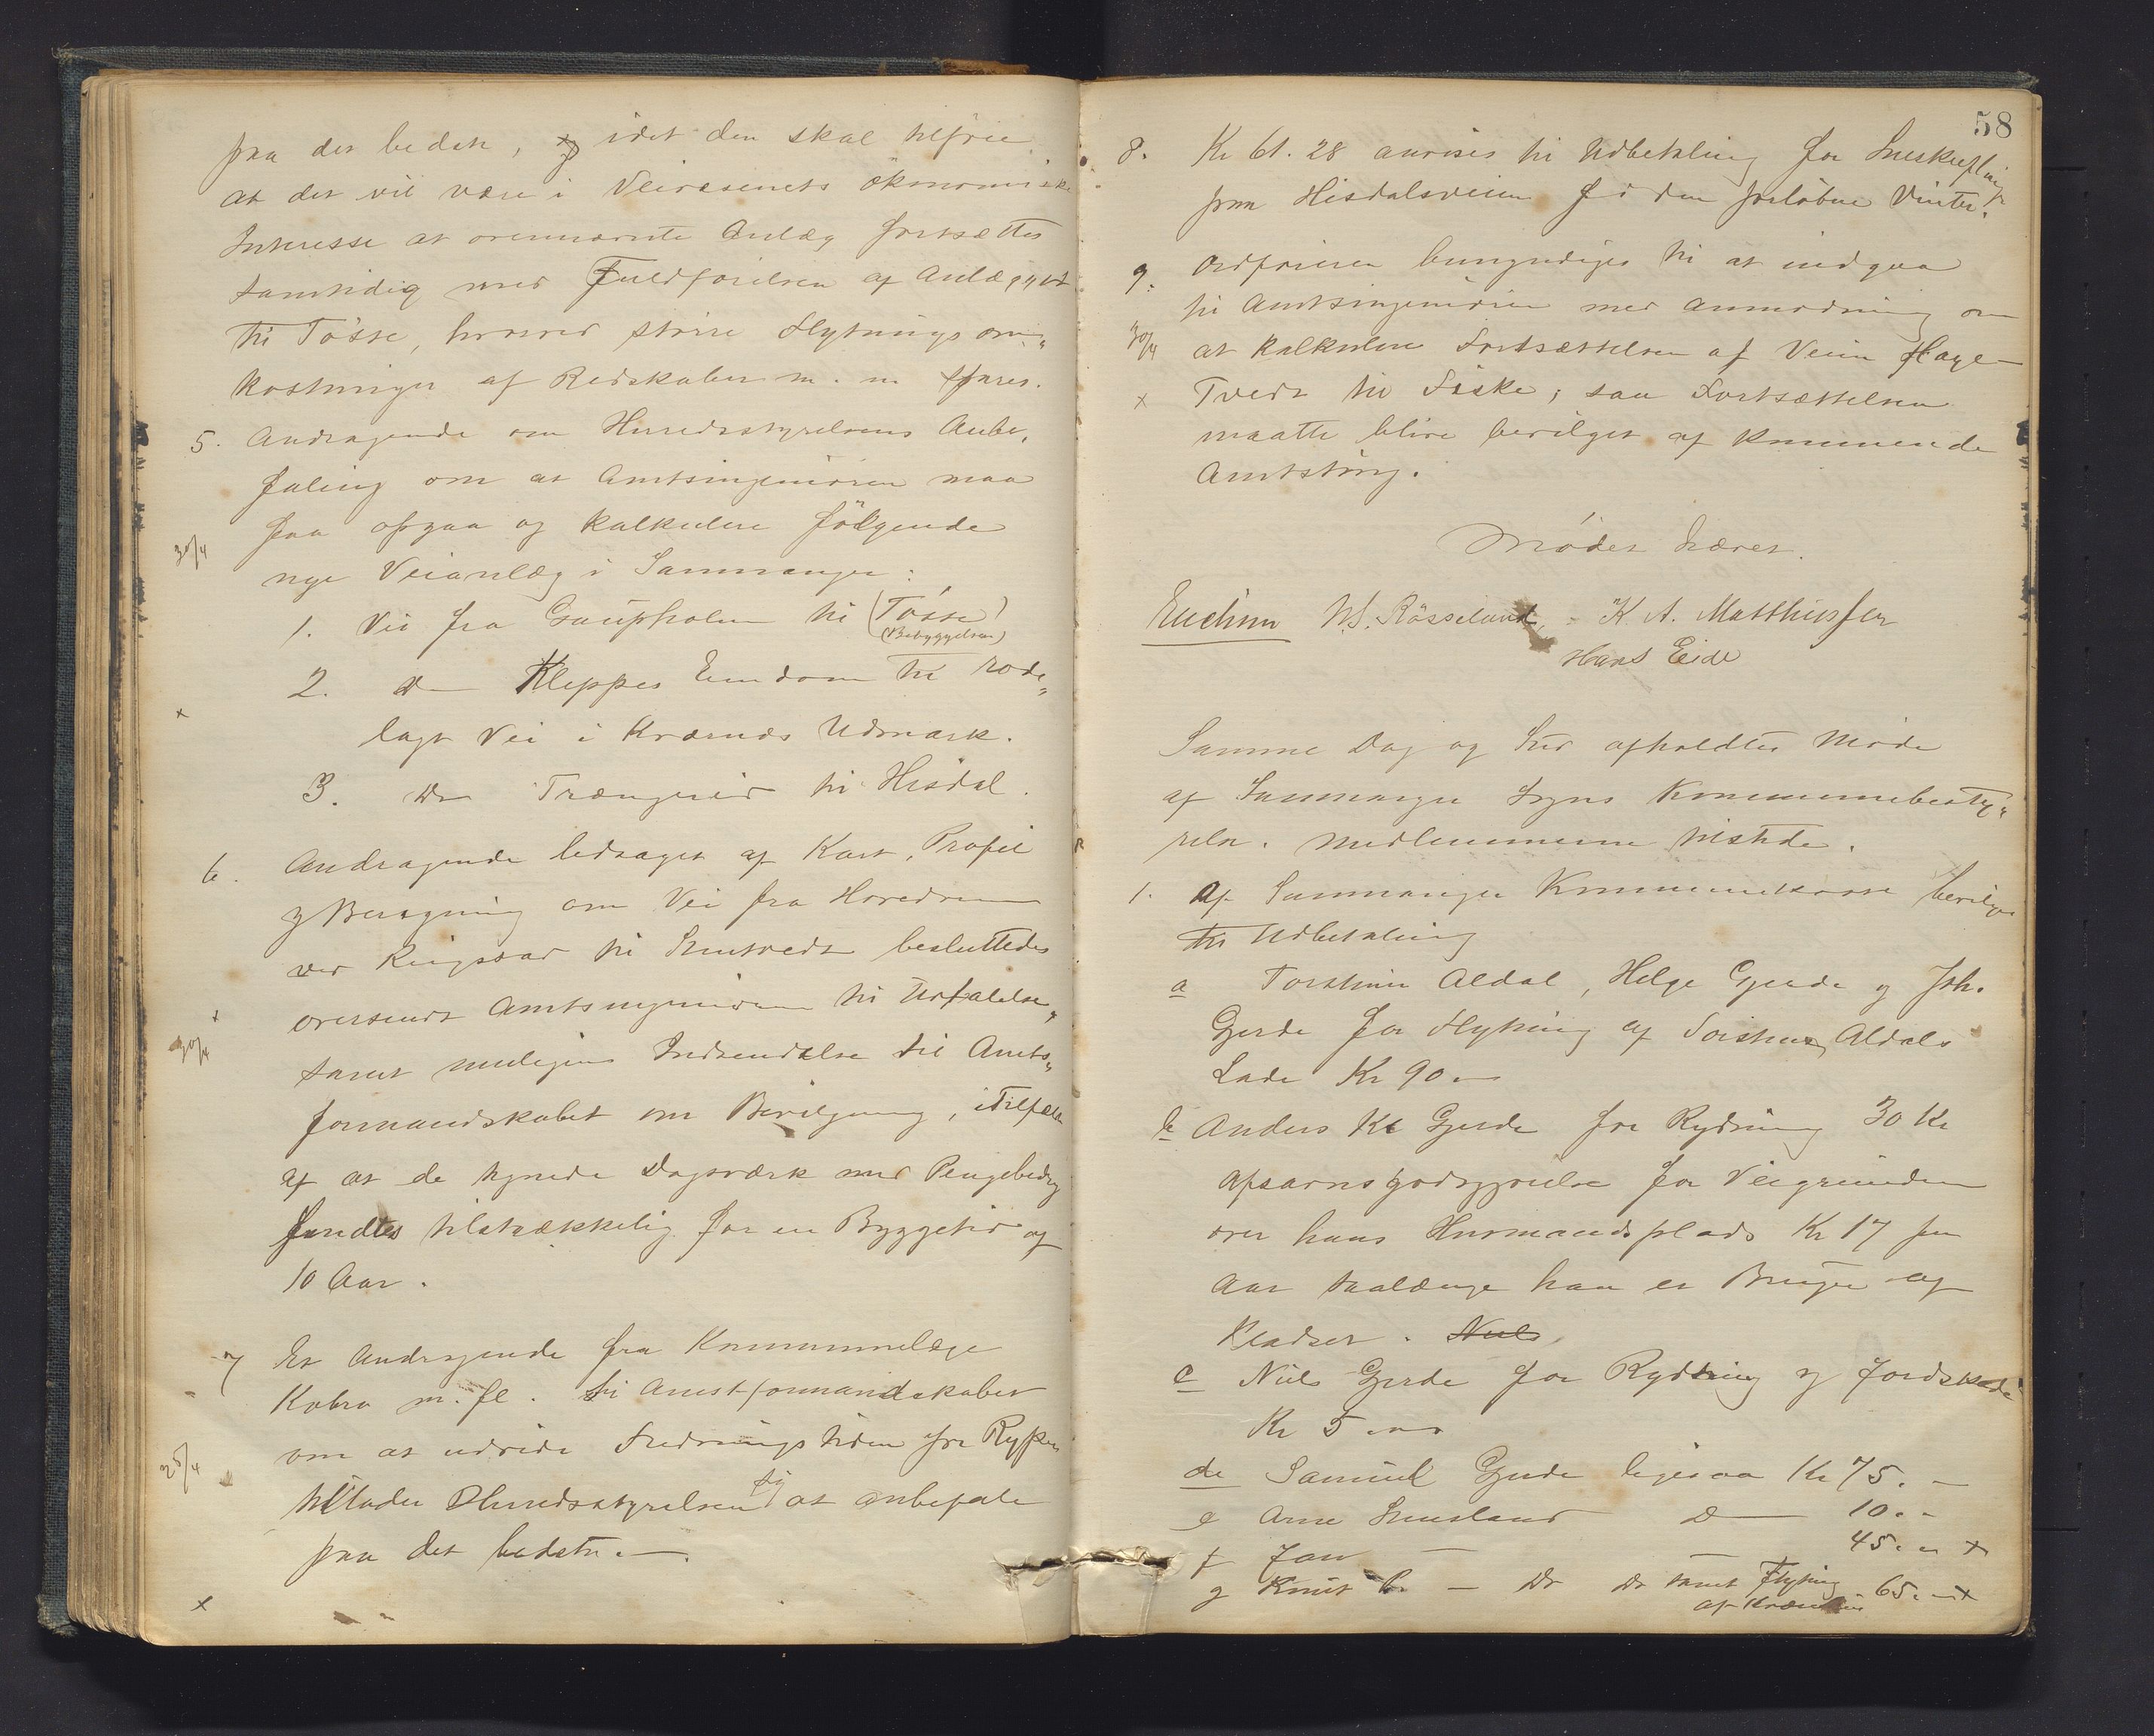 paa det bedste, idet den skal tilføie
at det vil være i Veivæsenets økonomiske
Interesse at ovennævnte Anlæg fortsættes
samtidig med Fuldførelsen af Anlægget
til Tøsse, hvorved større Flytningsom„
kostninger af Redskaber m. m. spares.
5. Andragende om Herredsstyrelsens Anbe„
faling om at Amtsingeniøren maa
faa opgaa og kalkulere følgende
30/4
nye Veianlæg i Samnanger:
1. Vei fra Gaupholm til (Tøsse)
(Bebyggelsen)
2. Do Kleppes Eiendom til rode„
lagt Vei i Kværnæs Udmark.
x
3. Do Trængereid til Hisdal.
6. Andragende ledsaget af Kart, Profil
og Beregning om Vei fra Hovedveien
ved Ringsvar til Smutvedt besluttedes
oversendt Amtsingeniøren til Udtalelse„
samt muligens Indsendelse til Amts„
30/4
formandskabet om Bevilgning, i Tilfælde
af at de tegnede Dagsværk med Pengebidrag
fandtes tilstrækkelig for en Byggetid af
10 Aar.
7 Et Andragende fra Kommunelæge
Kobro m. fl. til Amtsformandskabet
om at udvide Fredningstiden for Ryper
25/4
tillader Herredsstyrelsen sig at anbefale
paa det bedste.
x
58
8. Kr 61.28 anvises til Udbetaling for Sneskufling
paa Hisdalsveien i den forløbne Vinter.
9. Ordføreren bemyndiges til at indgaa
til Amtsingeniøren med Anmodning om
30/4
at kalkulere Fortsættelsen af Veien Hage-
x
Tvedt til Fiske; saa Fortsættelsen
maatte blive bevilget af kommende
Amtsting.
Mødet hævet.
N. S. Røsseland, K. A. Matthiessen
Hans Eide
Samme Dag og Sted afholdtes Møde
af Samnanger Sogns Kommunebesty„
relse. Medlemmerne tilstede.
1. Af Samnanger Kommunekasse bevilges
til Udbetaling
a Torstein Aldal, Helge Gjerde og Joh.
Gjerde for Flytning af Torstein Aldals
Lade Kr 90
b Anders K Gjerde for Rydning 30 Kr
Afsavnsgodtgjørelse for Veigrunden
over hans Husmandsplads Kr 17 pr
Aar saalænge han er Bruger af
Pladsen. Niels
c Niels Gjerde for Rydning og Jordskade
Kr 5
d Samuel Gjerde ligesaa Kr 75.-
e Arne Do 10.-
f Jan 45. x
g Knut Do Do samt Flytning 65. x
af